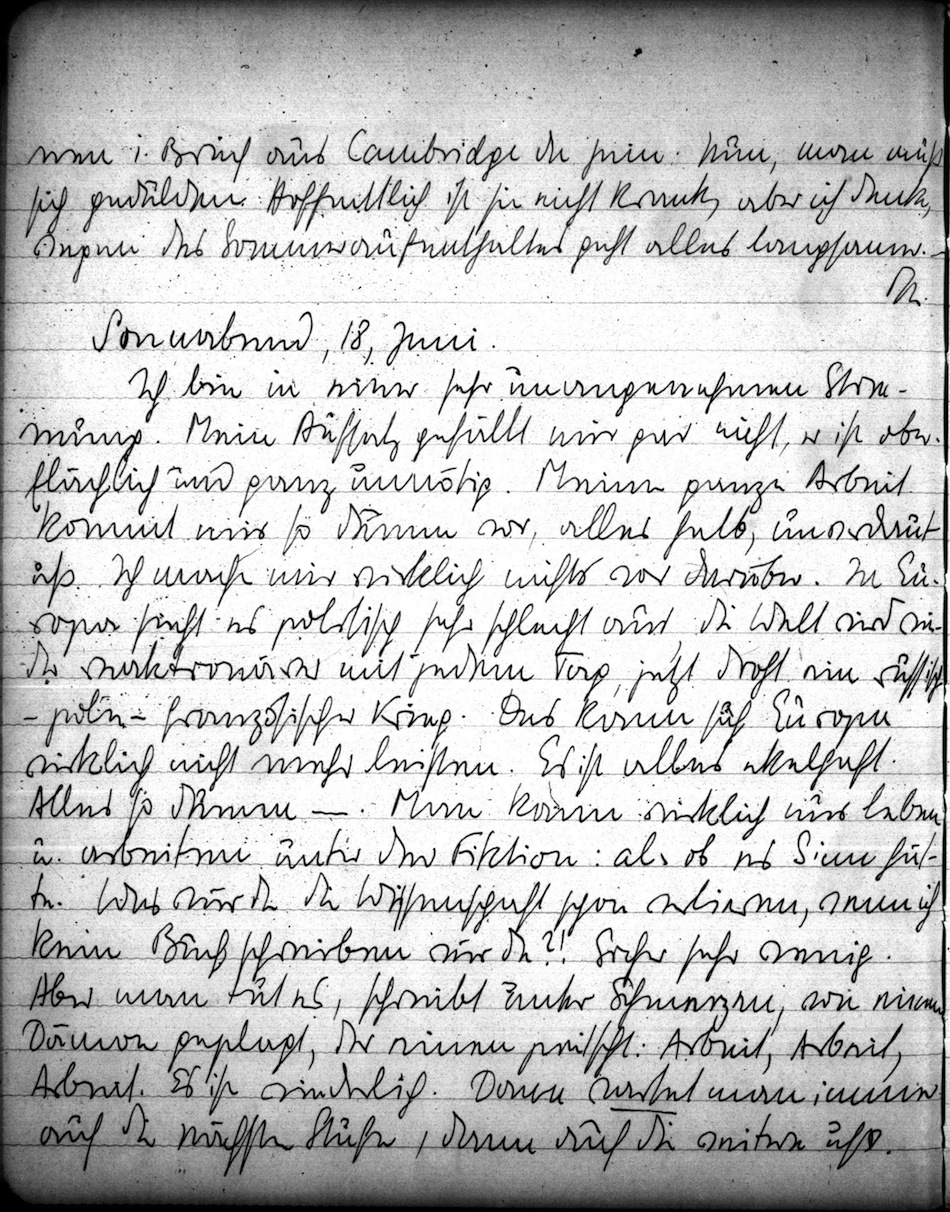 wenn i. Brief aus Cambridge da sein. Nun, man muß
sich gedulden. Hoffentlich ist sie nicht krank, aber ich denke,
wegen des Sommeraufenthaltes geht alles langsam. –
Sonnabend, 18, Juni.
Ich bin in einer sehr unangenehmen Stim-
mung. Mein Aufsatz gefällt mir gar nicht, er ist ober-
flächlich und ganz unnötig. Meine ganze Arbeit
kommt mir so dumm vor, alles halb, unverdaut
usf. Ich mache mir wirklich nichts vor darüber. In Eu-
ropa sieht es politisch sehr schlecht aus, die Welt wird wie-
der reaktionärer mit jedem Tag, jetzt droht ein russisch
– poln – französischer Krieg. Das kann sich Europa
wirklich nicht mehr leisten. Es ist alles ekelhaft.
Alles so dumm —. Man kann wirklich nur leben
u. arbeiten unter der Fiktion: als ob es Sinn hät-
te. Was würde die Wissenschaft schon verlieren, wenn ich
kein Buch schreiben würde?! Sicher sehr wenig.
Aber man tut es, schreibt unter Schmerzen, wie einem
Dämon geplagt, der einen peitscht: Arbeit, Arbeit,
Arbeit. Es ist widerlich. Dann wartet man immer
auf die nächste Stufe, dann auf die weitere usf.